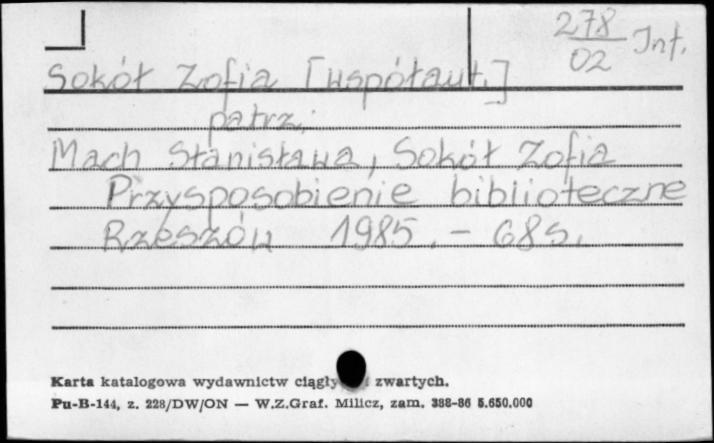 278
02 Inf.
Sokół Zofia [współaut.]
patrz:
Mach Stanisława, Sokół Zofia
Przysposobienie biblioteczne
Rzeszów 1985. - 68s.
Karta katalogowa wydawnictw ciągły i zwartych.
Pu-B-144, z. 228/DW/ON — W.Z.Graf. Milicz, zam. 388-86 5.650.000